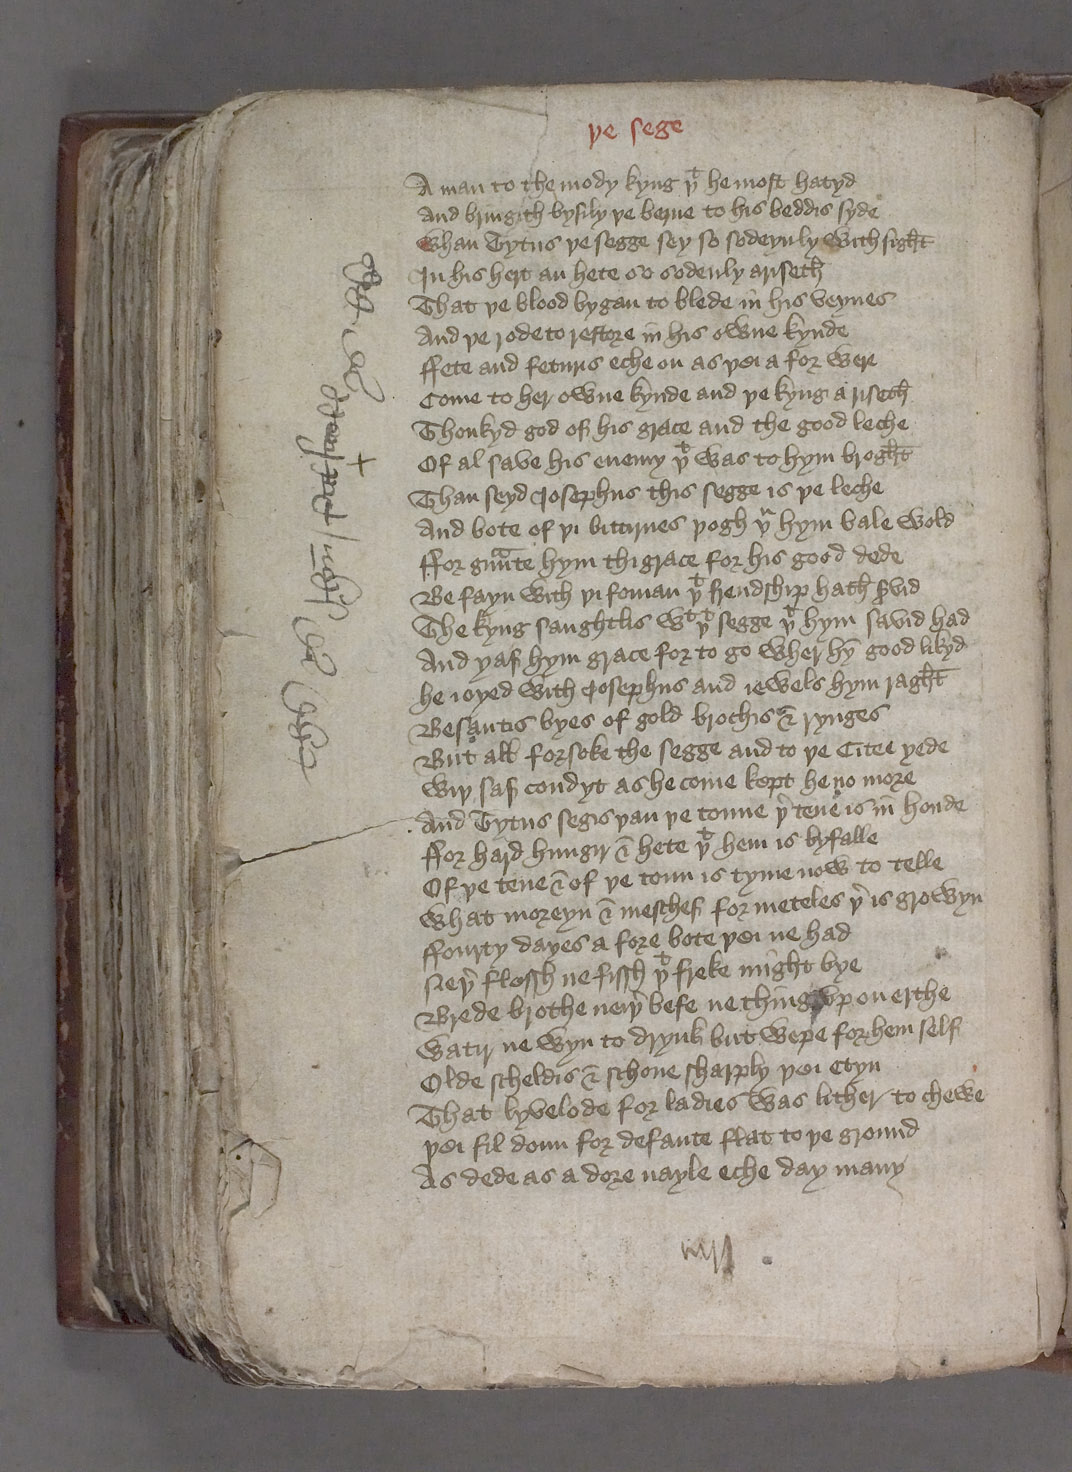 þe sege
A man to the mody kyng þt he most hatyd
And bringith bysily þe berne to his beddis syde
Whan Tytus þe segge sey so sodeynly with sight
In his hert an hete so sodenly ariseth
That þe blood bygan to blede in his veynes
And þe rode to restore in his owne kynde
ffete and feturis eche on as þei a for were
Come to her owne kynde and þe kyng ariseth
Thonkyd god of his grace and the good leche
Of al save his enemy þt was to hym broght
Than seyd Josephus this segge is þe leche
And bote of þi bittirnes þogh þu hym bale wold
ffor graunte hym thi grace for his good dede
Be fayn with þi foman þt frendschip hath servid
The kyng saughtlis wt þt segge þt hym savid had
And yaf hym grace for to go wher hym good likyd
he ioyed with Josephus and iewels hym raght
Besantis byes of gold brochis & rynges
But all forsoke the segge and to þe Citee yede
Wiþ saf condyt as he come kept he no more
And Tytus segis þan þe toune þer tene is in honde
ffor hard hungir & hete þt hem is byfalle
Of þe tene & of þe toun is tyme now to telle
What moreyn & meschef for meteles þer is growyn
ffourty dayes a fore bote þei ne had
Neþer flessh ne fissh þt freke might bye
Brede brothe neiþer befe ne thing upon erthe
Watir ne wyn to drynk but wepe for hem self
Olde scheldis & schone sharply þei etyn
That lyvelode for ladies was lither to chewe
þei fil doun for defaute flat to þe ground
As dede as a dore nayle eche day many